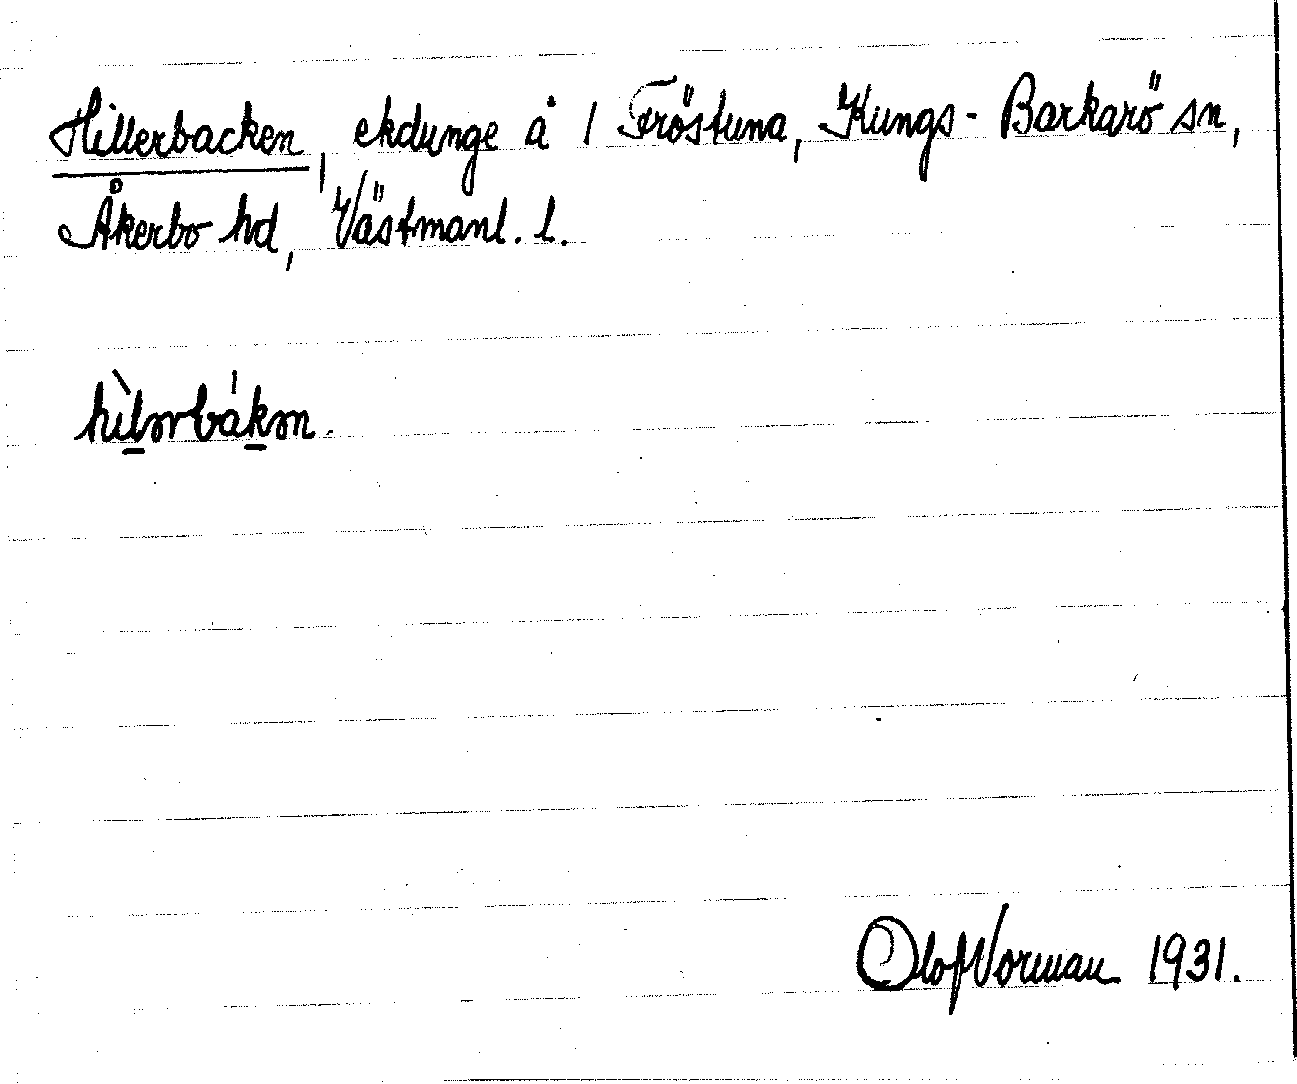 Hillerbacken, ekdunge å 1 Fröstuna, Kungs-Barkarö sn,
Åkerbo hd, Västmanl. l.
hìlərbákən.
Olof Norman 1931.